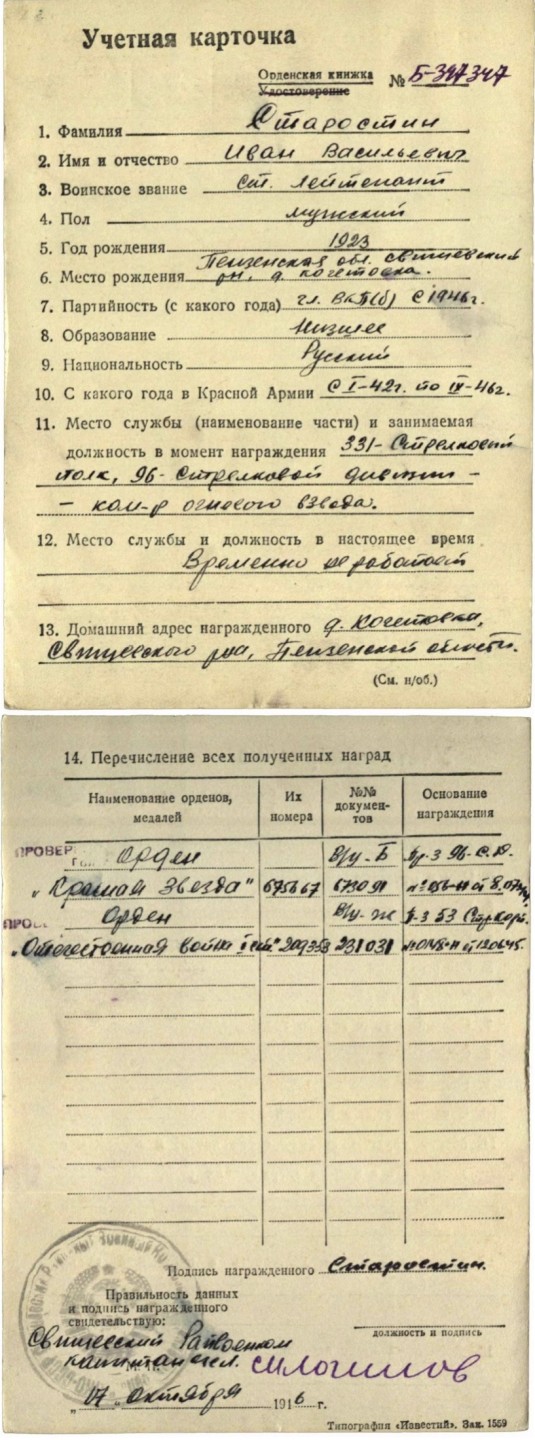 Учетная карточка
Орденская книжка
Удостоверение
№ Б-347347
1. Фамилия Старостин
2. Имя и отчество Иван Васильевич
3. Воинское звание Ст. Лейтенант
4. Пол мужской
5. Год рождения 1923
Пензенская обл. Свищевский
6. Место рождения рн, д. Кочетовка.
7. Партийность (с какого года) чл. ВКП(б) с 1946г.
8. Образование Низшее
9. Национальность Русский
10. С какого года в Красной Армии С I-42г. по IV-46г.
11. Место службы (наименование части) и занимаемая
должность в момент награждения 331- Стрелковый
полк, 96- Стрелковой дивизии -
- ком-р огневого взвода.
12. Место службы и должность в настоящее время
Временно не работает
13. Домашний адрес награжденного д. Кочетовка,
Свищевского р-на, Пензенской области.
(См. н/об.)
14. Перечисление всех полученных наград
Наименование орденов, медалей
Их номера
№№ документов
Основание награждения
ПРОВЕР
Орден В/у-Б Пр-з 96-С.Д.
„Красная Звезда" 675667 673091
ПРОВ
Орден В/у-ж Пр-з 53 Стр.кор.
„Отечественная война I ст" 209353 231031
Подпись награжденного Старостин.
Правильность данных
и подпись награжденного
свидетельствую:
должность и подпись
Свищевский Райвоенком
капитан
„17" октября 1946 г.
Типография «Известий». Зак. 1559